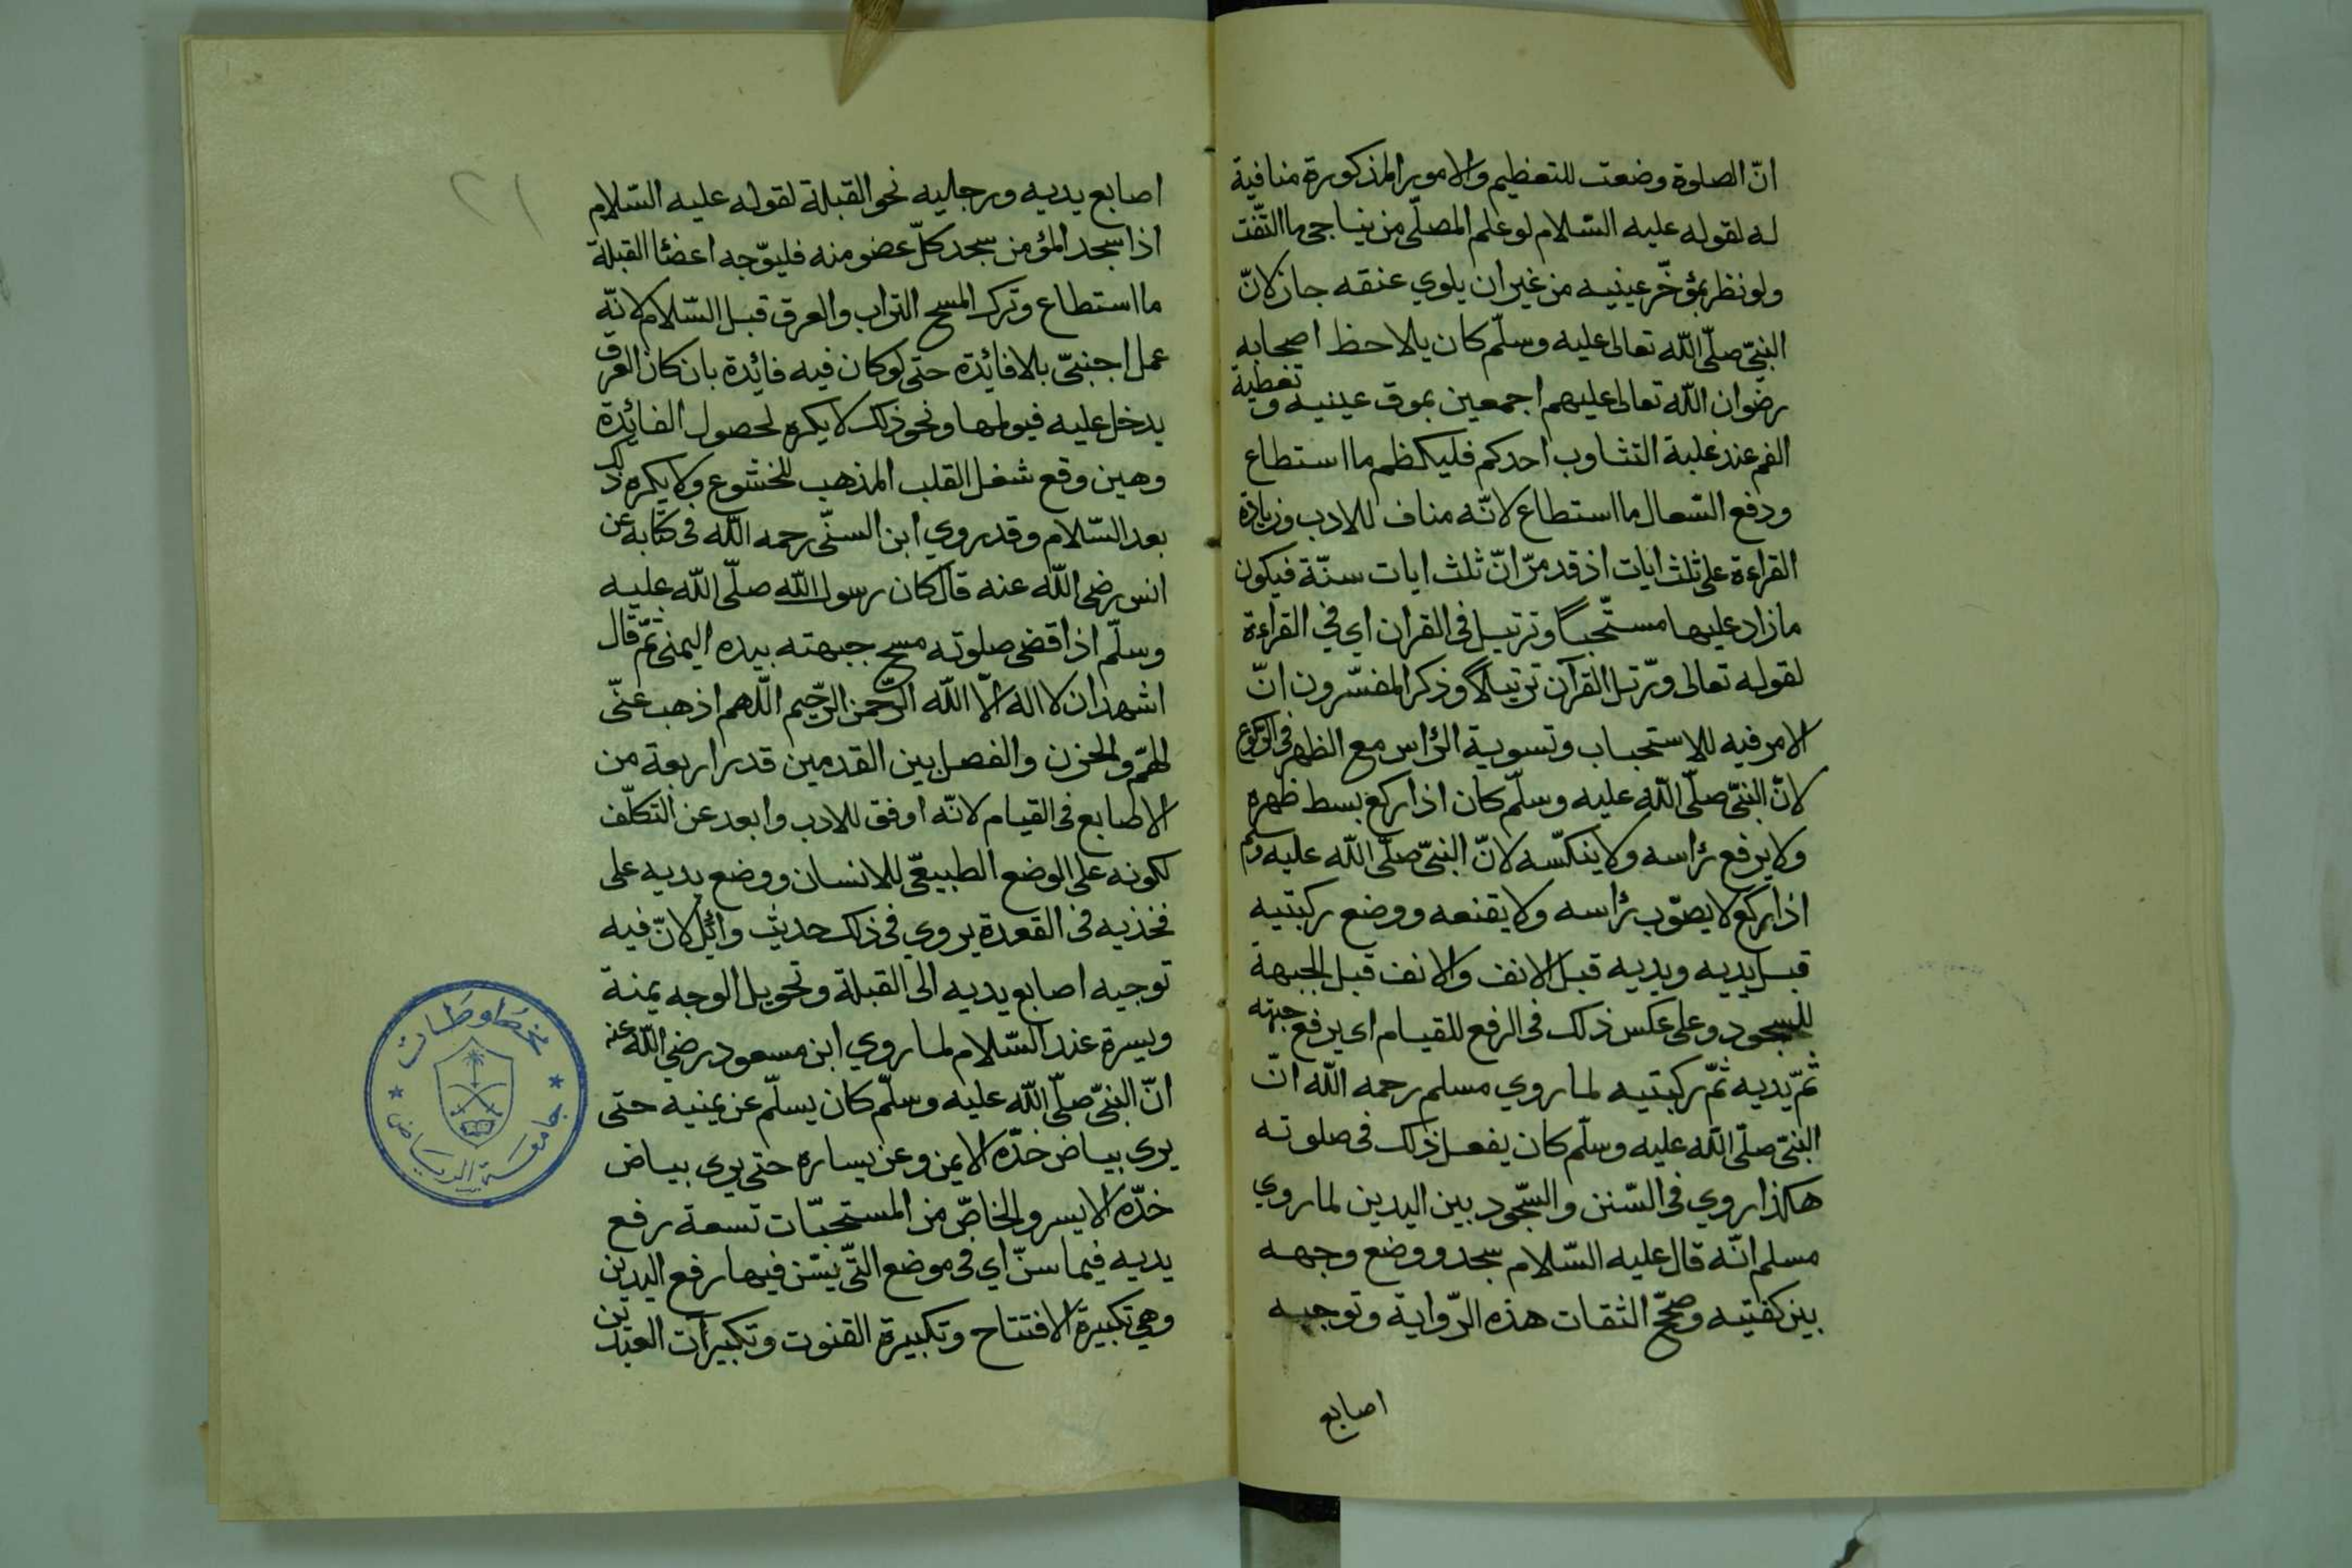 انّ الصلوة وضعت للتعظيم والامور المذكورة منافية
له لقوله عليه السّلام لو علم المصلّى من يناجى ما التفت
ولو نظر بمؤخّر عينيه من غير ان يلوي عنقه جاز لانّ
النبيّ صلّى اللّه تعالى عليه وسلّم كان يلاحظ اصحابه
رضوان اللّه تعالى عليهم اجمعين بموق عينيه و تغطية
الفم عند غلبة التثاوب احدكم فليكظم ما استطاع
ودفع السّعال ما استطاع لانّه مناف للادب وزيادة
القراءة على ثلث ايات اذ قد مرّ انّ ثلث ايات سنّة فيكون
ما زاد عليها مستحبّا وترتيل فى القران اي في القراءة
لقوله تعالى ورتّل القرآن ترتيلاً وذكر المفسّرون انّ
الامر فيه للاستحباب وتسوية الرّاس مع الظهر فى الرّكوع
لانّ النبيّ صلّى اللّه عليه وسلّم كان اذا ركع بسط ظهره
ولا يرفع رأسه ولا ينكّسه لانّ النبيّ صلّى اللّه عليه وسلم
اذا ركع لا يصوّب رأسه ولا يقنعه ووضع ركبتيه
قبل يديه ويديه قبل الانف والانف قبل الجبهة
للسجود وعلى عكس ذلك فى الرفع للقيام اى يرفع جبهته
ثمّ يديه ثمّ ركبتيه لما روي مسلم رحمه اللّه انّ
النبيّ صلّى اللّه عليه وسلّم كان يفعل ذلك فى صلوته
هكذا روي فى السّنن والسّجود بين اليدين لما روي
مسلم انّه قال عليه السّلام سجد ووضع وجهه
بين كفتيه وصحّح الثقات هذه الرّواية وتوجيه
اصابع
٢١
اصابع يديه ورجليه نحو القبلة لقوله عليه السّلام
اذا سجد المؤمن سجد كلّ عضو منه فليوّجه اعضئا القبلة
ما استطاع وترك المسح التراب والعرق قبل السّلام لانّه
عمل اجنبيّ بلا فائدة حتى لو كان فيه فائدة بان كان العرق
يدخل عليه فيولمها ونحو ذلك لا يكره لحصول الفائدة
وهين وقع شغل القلب المذهب للخشوع ولا يكره ذلك
بعد السّلام وقد روي ابن السنّى رحمه اللّه فى كتابه عن
انس رضى اللّه عنه قال كان رسول اللّه صلّى اللّه عليه
وسلّم اذا قضى صلوته مسح جبهته بيده اليمنى ثمّ قال
اشهد ان لا اله الّا اللّه الرّحمن الرّحيم اللّهم اذهب عنّى
الهمّ والحزن والفصل بين القدمين قدر اربعة من
الاصابع فى القيام لانّه اوفق للادب وابعد عن التكلّف
لكونه على الوضع الطبيعّى للانسان ووضع يديه على
فخذيه فى القعدة يروي فى ذلك حديث وائل لانّ فيه
توجيه اصابع يديه الى القبلة وتحويل الوجه يمنة
ويسرة عند السّلام لما روي ابن مسعود رضي اللّه عنه
انّ النبىّ صلّى اللّه عليه وسلّم كان يسلّم عن يمنيه حتى
يرى بياض خدّه الايمن وعن يساره حتى يرى بياض
خدّه الايسر والخاصّ من المستحبّات تسعة رفع
يديه فيما سنّ اي فى موضع التّى يسّن فيها رفع اليدين
وهي تكبيرة الافتتاح وتكبيرة القنوت وتكبيرات العيدين
مخطوطات
جامعة الرياض